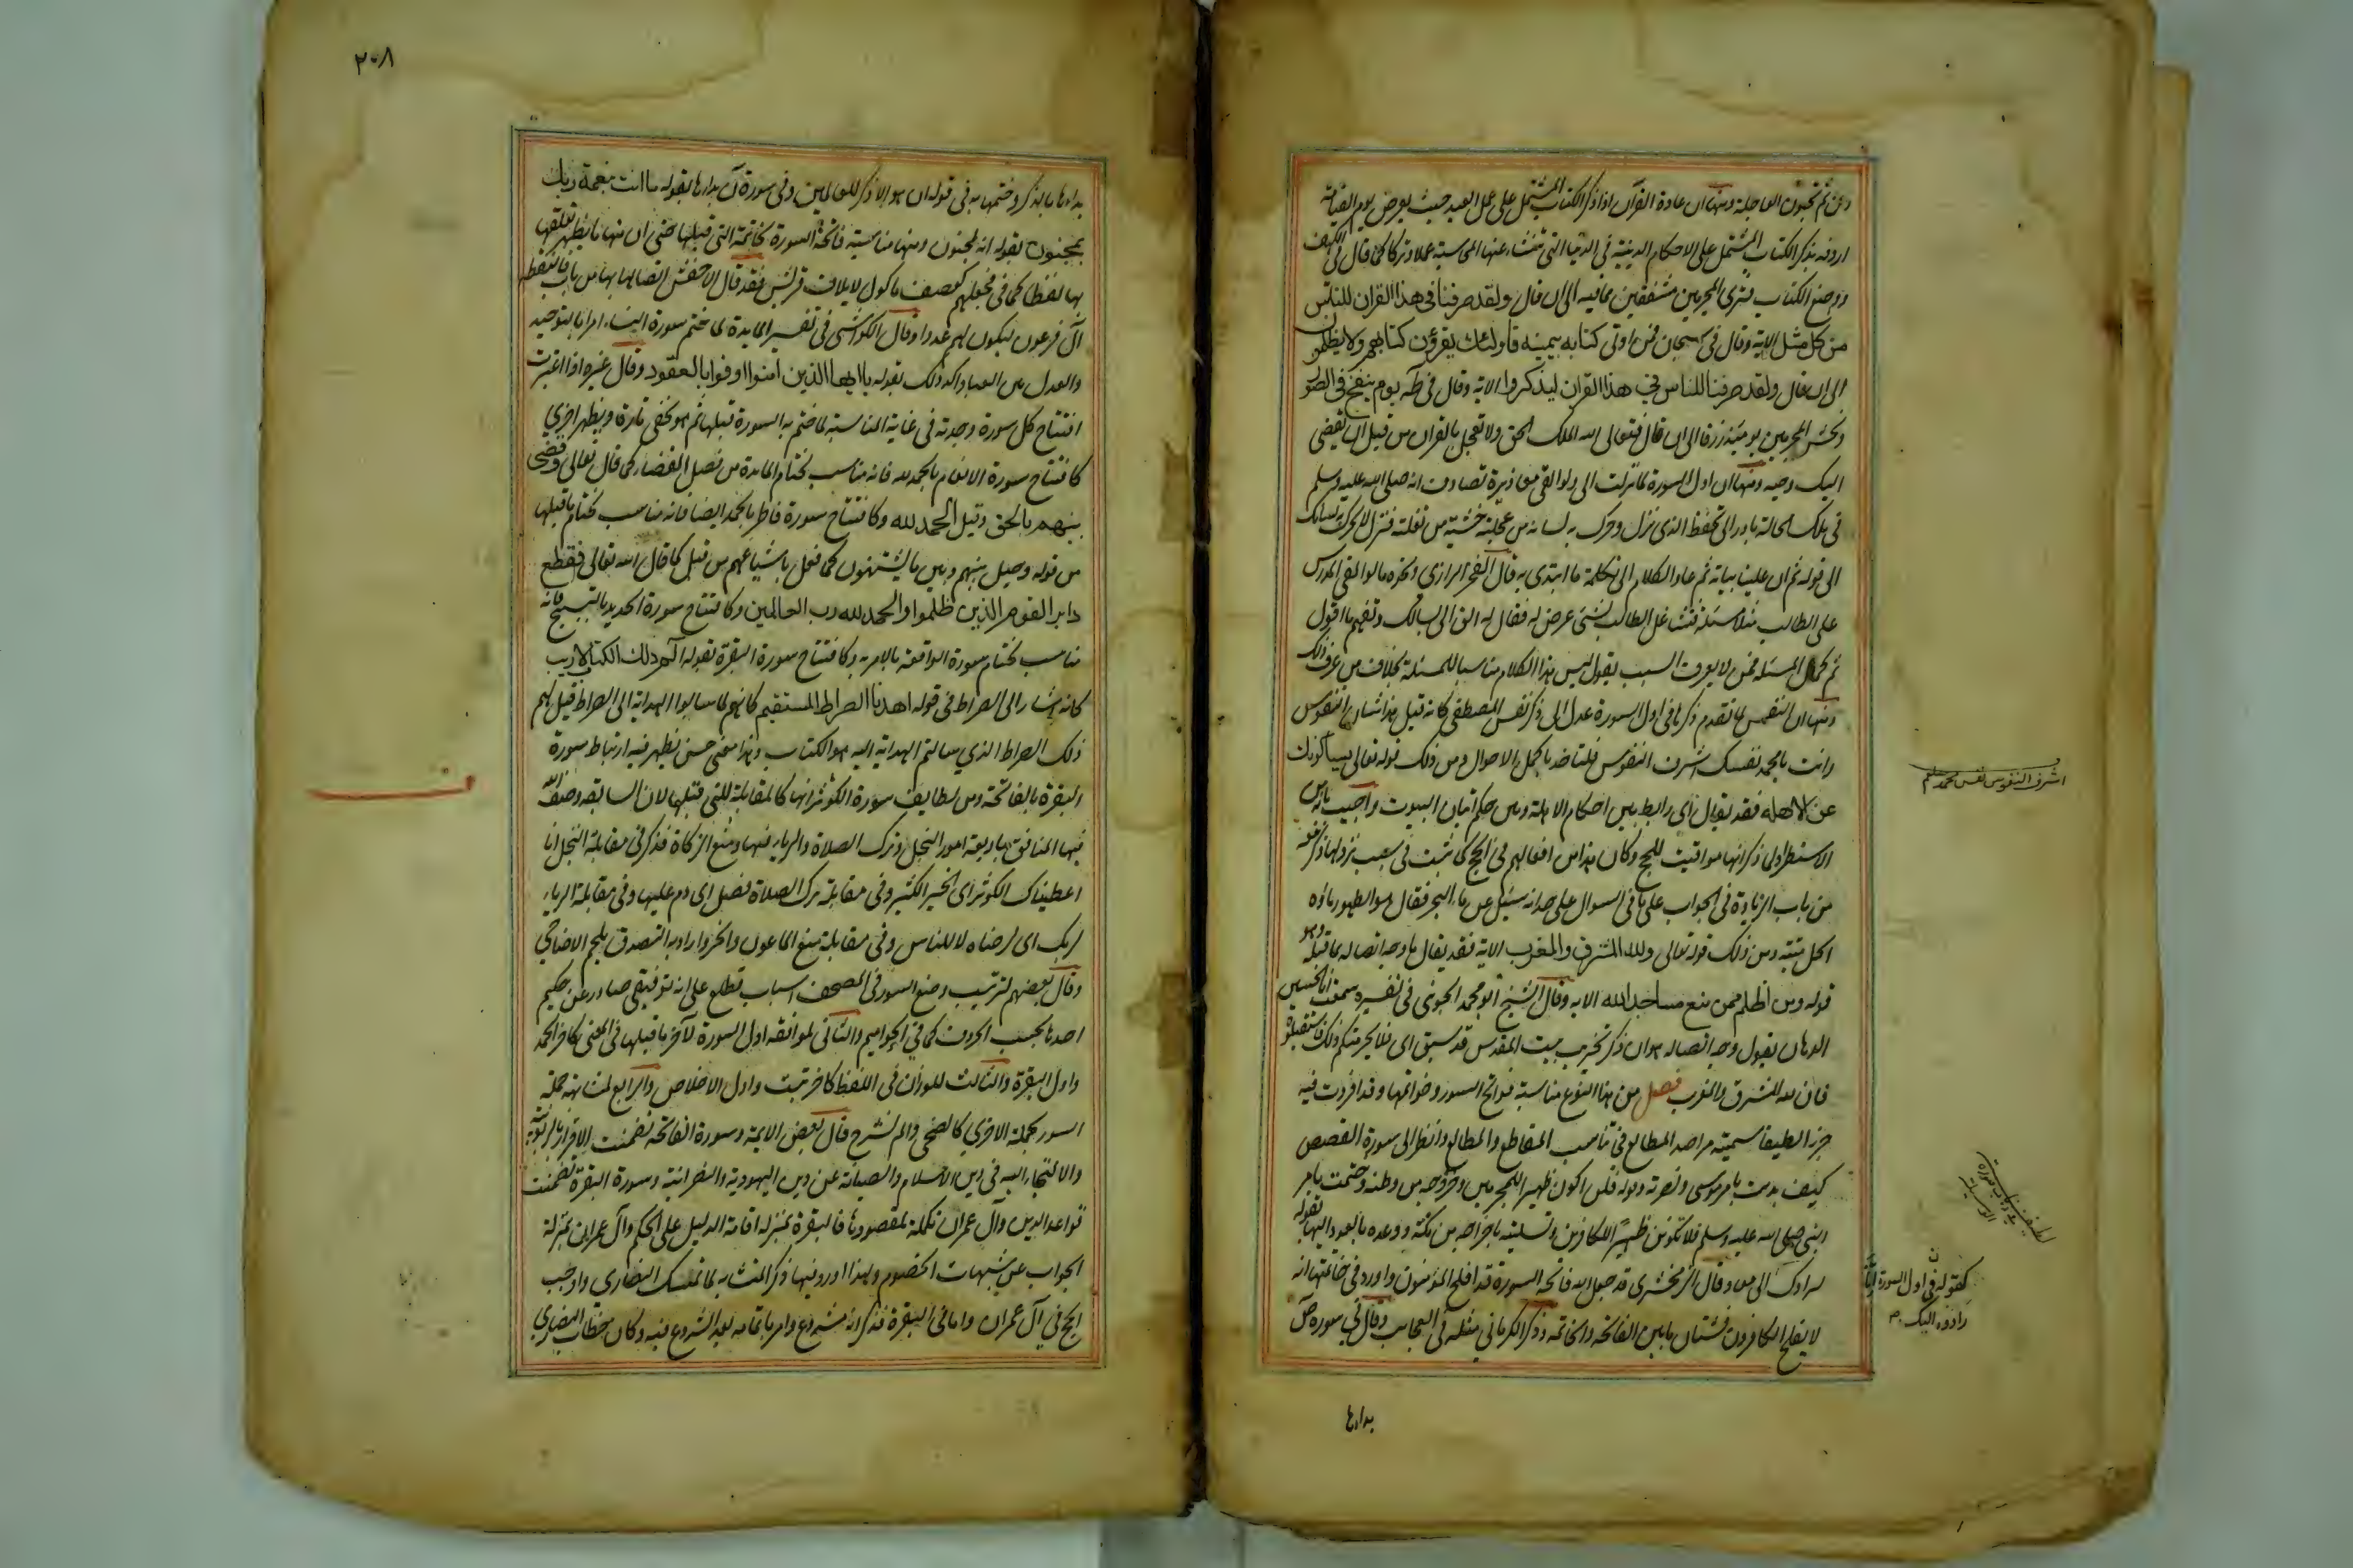 ومن ثم تحبون العاجلة ومنها ان عادة القرآن اذا ذكر الكتاب المشتمل على عمل العبد حيث يعرض يوم القيامة
اردفه بذكر الكتاب المشتمل على الاحكام الدينية فى الدنيا التى تنشاء عنها المحاسبة عملا وتركا كما قال فى الكهف
ووضع الكتاب فترى المجرمين مشفقين مما فيه الى ان قال ولقد صرفنا فى هذا القران للناس
من كل مثل الاية وقال فى سبحان فمن اوتى كتابه بيمينه فاولئك يقرؤن كتابهم ولا يظلمون
الى ان قال ولقد صرفنا للناس فى هذا القران ليذكروا الاية وقال فى طه يوم ينفخ فى الصور
ونحشر المجرمين يومئذ زرقا الى ان قال فتعالى الله الملك الحق ولا تعجل بالقران من قبل ان يقضى
اليك وحيه ومنها ان اول السورة لما نزلت الى ولو القى معاذيره تصادف انه صلى الله عليه وسلم
فى تلك الحالة بادر الى تحفظ الذى نزل وحرك به لسانه من عجلته خشية من تفلته فنزل لا تحرك به لسانك
الى قوله ثم ان علينا بيانه ثم عاد الكلام الى تكلمة ما ابتدى به قال الفخر الرازى ونحوه ما لو القى المدرس
على الطالب مثلا مسئلة فتشاغل الطالب بشئ عرض له فقال له الق الى بالك وتفهم ما اقول
ثم كمل المسئلة فمن لا يعرف السبب يقول ليس هذا الكلام مناسبا للمسئلة بخلاف من عرف ذلك
ومنها ان النفس لما تقدم ذكرها فى اول السورة عدل الى ذكر نفس المصطفى كانه قيل هذا شان النفوس
وانت يا محمد نفسك اشرف النفوس فلتاخذ باكمل الاحوال ومن ذلك قوله تعالى يسئلونك
عن الاهلة فقد يقال اى رابط بين احكام الاهلة وبين حكم اتيان البيوت واجيب بانه من
الاستطراد لما ذكر انها مواقيت للحج وكان هذا من افعالهم فى الحج كما ثبت فى سبب نزولها ذكر معه
من باب الزيادة فى الجواب على ما فى السوال على حد انه سئل عن ماء البحر فقال هو الطهور ماؤه
الحل ميتته ومن ذلك قوله تعالى ولله المشرق والمغرب الاية فقد يقال ما وجه اتصاله بما قبله وهو
قوله ومن اظلم ممن منع مساجد الله الاية وقال الشيخ ابو محمد الجوينى فى تفسيره سمعت ابا الحسين
الدهان يقول وجه اتصاله هو ان ذكر تخريب بيت المقدس قد سبق اى فلا يجرمنكم ذلك واستقبلوه
فان لله المشرق والمغرب فصل من هذا النوع مناسبة فواتح السور وخواتمها وقد افردت فيه
جزءا لطيفا سميته مراصد المطالع فى تناسب المقاطع والمطالع وانظر الى سورة القصص
كيف بدئت بامر موسى ونصرته وقوله فلن اكون ظهيرا للمجرمين وخروجه من وطنه وختمت بامر
النبى صلى الله عليه وسلم فلا تكونن ظهيرا للكافرين وتسليته باخراجه من مكة ووعده بالعود اليها بقوله
لرادك الى معاد وقال الزمخشرى قد جعل الله فاتحة السورة قد افلح المؤمنون واورد فى خاتمتها انه
لا يفلح الكافرون فشتان ما بين الفاتحة والخاتمة وذكر الكرمانى مثله فى العجائب وقال فى سورة ص
بداءها
اشرف النفوس نفس محمد صلعم
كقوله فى اول السورة انا
رادوه اليك
٢٠٨
بداءها بالذكر وختمها به فى قوله ان هو الا ذكر للعالمين وفى سورة ن بداءها بقوله ما انت بنعمة ربك
بمجنون بقوله انه لمجنون ومنها مناسبة فاتحة السورة لخاتمة التى قبلها حتى ان منها ما يظهر تعلقها
بها لفظا كما فى فجعلهم كعصف ماكول لايلاف قريش فقد قال الاخفش اتصالها بها من باب فالتقطه
آل فرعون ليكون لهم عدوا وقال الكواشى فى تفسير المايدة لما ختم سورة النساء امرا بالتوحيد
والعدل بين العباد اكد ذلك بقوله يا ايها الذين امنوا اوفوا بالعقود وقال غيره اذا اعتبرت
افتتاح كل سورة وجدته فى غاية المناسبة لما ختم به السورة قبلها ثم هو يخفى تارة ويظهر اخرى
كافتتاح سورة الانعام بالحمد لله فانه مناسب لختام المايدة من فصل القضاء كما قال تعالى وقضى
بينهم بالحق وقيل الحمد لله وكافتتاح سورة فاطر بالحمد ايضا فانه مناسب لختام ما قبلها
من قوله وحيل بينهم وبين ما يشتهون كما فعل باشياعهم من قبل كما قال الله تعالى فقطع
دابر القوم الذين ظلموا والحمد لله رب العالمين وكافتتاح سورة الحديد بالتسبيح فانه
مناسب لختام سورة الواقعة بالامر به وكافتتاح سورة البقرة بقوله الم ذلك الكتاب لا ريب
كانه اشار الى الصراط فى قوله اهدنا الصراط المستقيم كانهم لما سالوا الهداية الى الصراط قيل لهم
ذلك الصراط الذى سالتم الهداية اليه هو الكتاب وهذا معنى حسن يظهر فيه ارتباط سورة
البقرة بالفاتحة ومن لطايف سورة الكوثر انها كالمقابلة للتى قبلها لان السابقة وصف الله
فيها المنافق باربعة امور البخل وترك الصلاة والرياء فيها ومنع الزكاة فذكر فى مقابلة البخل انا
اعطيناك الكوثر اى الخير الكثير وفى مقابلة ترك الصلاة فصل اى دم عليها وفى مقابلة الرياء
لربك اى لرضاه لا للناس وفى مقابلة منع الماعون وانحر واراد به التصدق بلحم الاضاحى
وقال بعضهم لترتيب وضع السور فى المصحف اسباب تطلع على انه توقيفى صادر عن حكيم
احدها بحسب الحروف كما فى الحواميم والثانى لموافقة اول السورة لآخر ما قبلها فى المعنى كاخر الحمد
واول البقرة والثالث للوزن فى اللفظ كاخر تبت واول الاخلاص والرابع لمشابهة جملة
السور لجملة الاخرى كالضحى والم نشرح قال بعض الايمة وسورة الفاتحة تضمنت الاقرار بالربوبية
والالتجاء اليه فى دين الاسلام والصيانة عن دين اليهودية والنصرانية وسورة البقرة تضمنت
قواعد الدين وآل عمران تكملة لمقصودها فالبقرة بمنزلة اقامة الدليل على الحكم وآل عمران بمنزلة
الجواب عن شبهات الخصوم ولهذا اورد فيها ذكر المتشابه لما تمسك النصارى واوجب
الحج فى آل عمران واما فى البقرة فذكر انه مشروع وامر باتمامه بعد الشروع فيه وكان خطاب النصارى